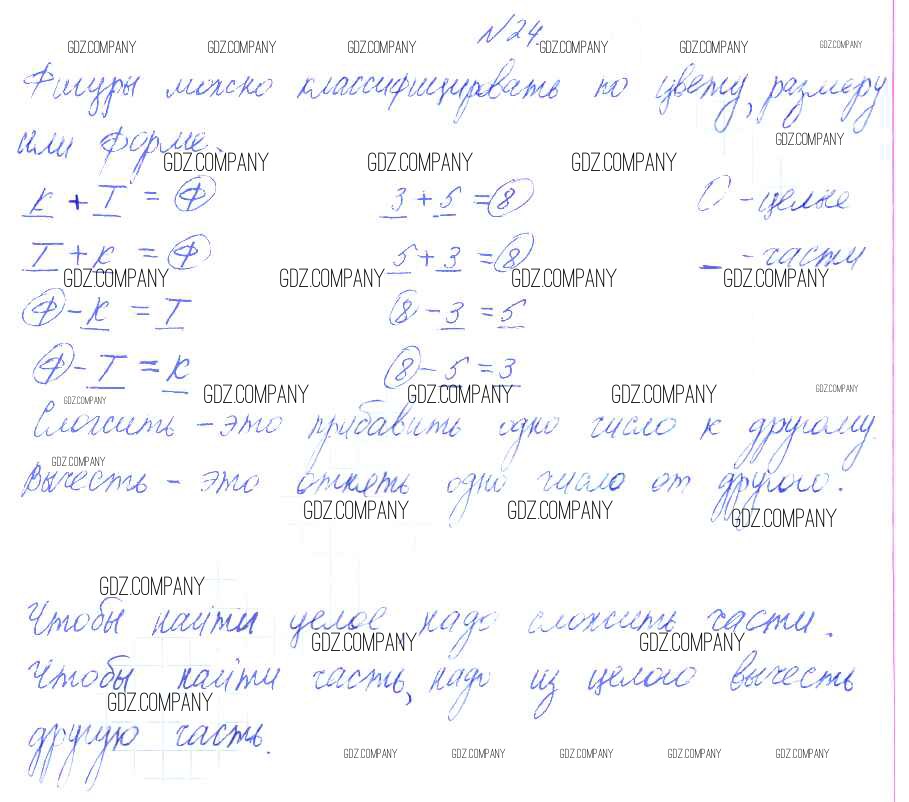 №24.
GDZ.COMPANY GDZ.COMPANY GDZ.COMPANY GDZ.COMPANY GDZ.COMPANY GDZ.COMPANY
Фигуры можно классифицировать по цвету, размеру
GDZ.COMPANY
или форме.
GDZ.COMPANY GDZ.COMPANY GDZ.COMPANY
К + Т = Ф 3 + 5 = 8 О - целые
Т + К = Ф 5 + 3 = 8 _ - части
GDZ.COMPANY GDZ.COMPANY GDZ.COMPANY GDZ.COMPANY
Ф - К = Т 8 - 3 = 5
Ф - Т = К 8 - 5 = 3
GDZ.COMPANY GDZ.COMPANY GDZ.COMPANY GDZ.COMPANY GDZ.COMPANY
Сложить - это прибавить одно число к другому.
GDZ.COMPANY
Вычесть - это отнять одно число от другого.
GDZ.COMPANY GDZ.COMPANY GDZ.COMPANY
GDZ.COMPANY
Чтобы найти целое, надо сложить части.
GDZ.COMPANY GDZ.COMPANY
Чтобы найти часть, надо из целого вычесть
GDZ.COMPANY
другую часть.
GDZ.COMPANY GDZ.COMPANY GDZ.COMPANY GDZ.COMPANY GDZ.COMPANY